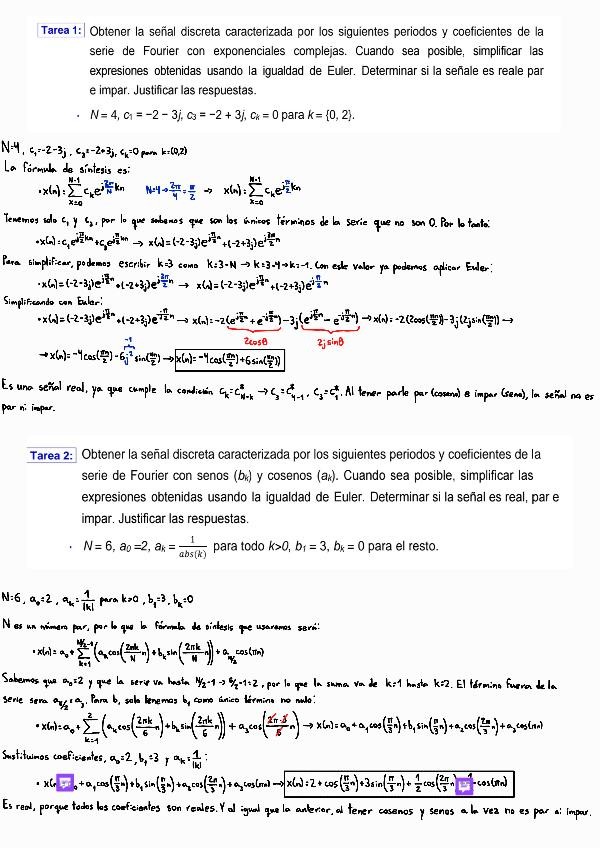 Tarea 1: Obtener la señal discreta caracterizada por los siguientes periodos y coeficientes de la
serie de Fourier con exponenciales complejas. Cuando sea posible, simplificar las
expresiones obtenidas usando la igualdad de Euler. Determinar si la señale es reale par
e impar. Justificar las respuestas.
· N = 4, c₁ = −2 − 3j, c₃ = −2 + 3j, cₖ = 0 para k = {0, 2}.
N=4, c₁=-2-3j, c₃=-2+3j, cₖ=0 para k=(0,2)
La fórmula de síntesis es:
· x(n) = Σ_{k=0}^{N-1} cₖ e^{j(2π/N)kn} N=4 → 2π/4 = π/2 → x(n) = Σ_{k=0}^{N-1} cₖ e^{j(π/2)kn}
Tenemos solo c₁ y c₃, por lo que sabemos que son los únicos términos de la serie que no son 0. Por lo tanto:
Para simplificar, podemos escribir k=3 como k=3-N → k=3-4 → k=-1. Con este valor ya podemos aplicar Euler:
· x(n) = (-2-3j)e^{j(π/2)n} + (-2+3j)e^{j(3π/2)n} → x(n) = (-2-3j)e^{j(π/2)n} + (-2+3j)e^{-j(π/2)n}
Simplificando con Euler:
→ x(n) = -2(e^{j(π/2)n} + e^{-j(π/2)n}) - 3j(e^{j(π/2)n} - e^{-j(π/2)n}) → x(n) = -2(2cos(πn/2)) - 3j(2jsin(πn/2)) →
2cosθ 2jsinθ
-1
→ x(n) = -4cos(πn/2) - 6j² sin(πn/2) → x(n) = -4cos(πn/2) + 6sin(πn/2)
Es una señal real, ya que cumple la condición cₖ = c*_{N-k} → c₃ = c*_{4-1}, c₃ = c₁*. Al tener parte par (coseno) e impar (seno), la señal no es
par ni impar.
Tarea 2: Obtener la señal discreta caracterizada por los siguientes periodos y coeficientes de la
serie de Fourier con senos (bₖ) y cosenos (aₖ). Cuando sea posible, simplificar las
expresiones obtenidas usando la igualdad de Euler. Determinar si la señal es real, par e
impar. Justificar las respuestas.
· N = 6, a₀ =2, aₖ = 1/abs(k) para todo k>0, b₁ = 3, bₖ = 0 para el resto.
N=6, a₀=2, aₖ=1/|k| para k>0, b₁=3, bₖ=0
N es un número par, por lo que la fórmula de síntesis que usaremos será:
· x(n) = a₀ + Σ_{k=1}^{N/2-1} (aₖ cos(2πk/N n) + bₖ sin(2πk/N n)) + a_{N/2} cos(πn)
Sabemos que a₀=2 y que la serie va hasta N/2-1 → 6/2-1=2, por lo que la suma va de k=1 hasta k=2. El término fuera de la
serie será a_{6/2} = a₃. Para b, solo tenemos b₁ como único término no nulo:
· x(n) = a₀ + Σ_{k=1}^{2} (aₖ cos(2πk/6 n) + bₖ sin(2πk/6 n)) + a₃ cos(2π·3/6 n) → x(n) = a₀ + a₁cos(π/3 n) + b₁sin(π/3 n) + a₂cos(2π/3 n) + a₃cos(πn)
Sustituimos coeficientes, a₀=2, b₁=3 y aₖ=1/|k|:
+ a₁cos(π/3 n) + b₁sin(π/3 n) + a₂cos(2π/3 n) + a₃cos(πn) → x(n) = 2 + cos(π/3 n) + 3sin(π/3 n) + 1/2 cos(2π/3 n) cos(πn)
Es real, porque todos los coeficientes son reales. Y al igual que la anterior, al tener cosenos y senos a la vez no es par ni impar.